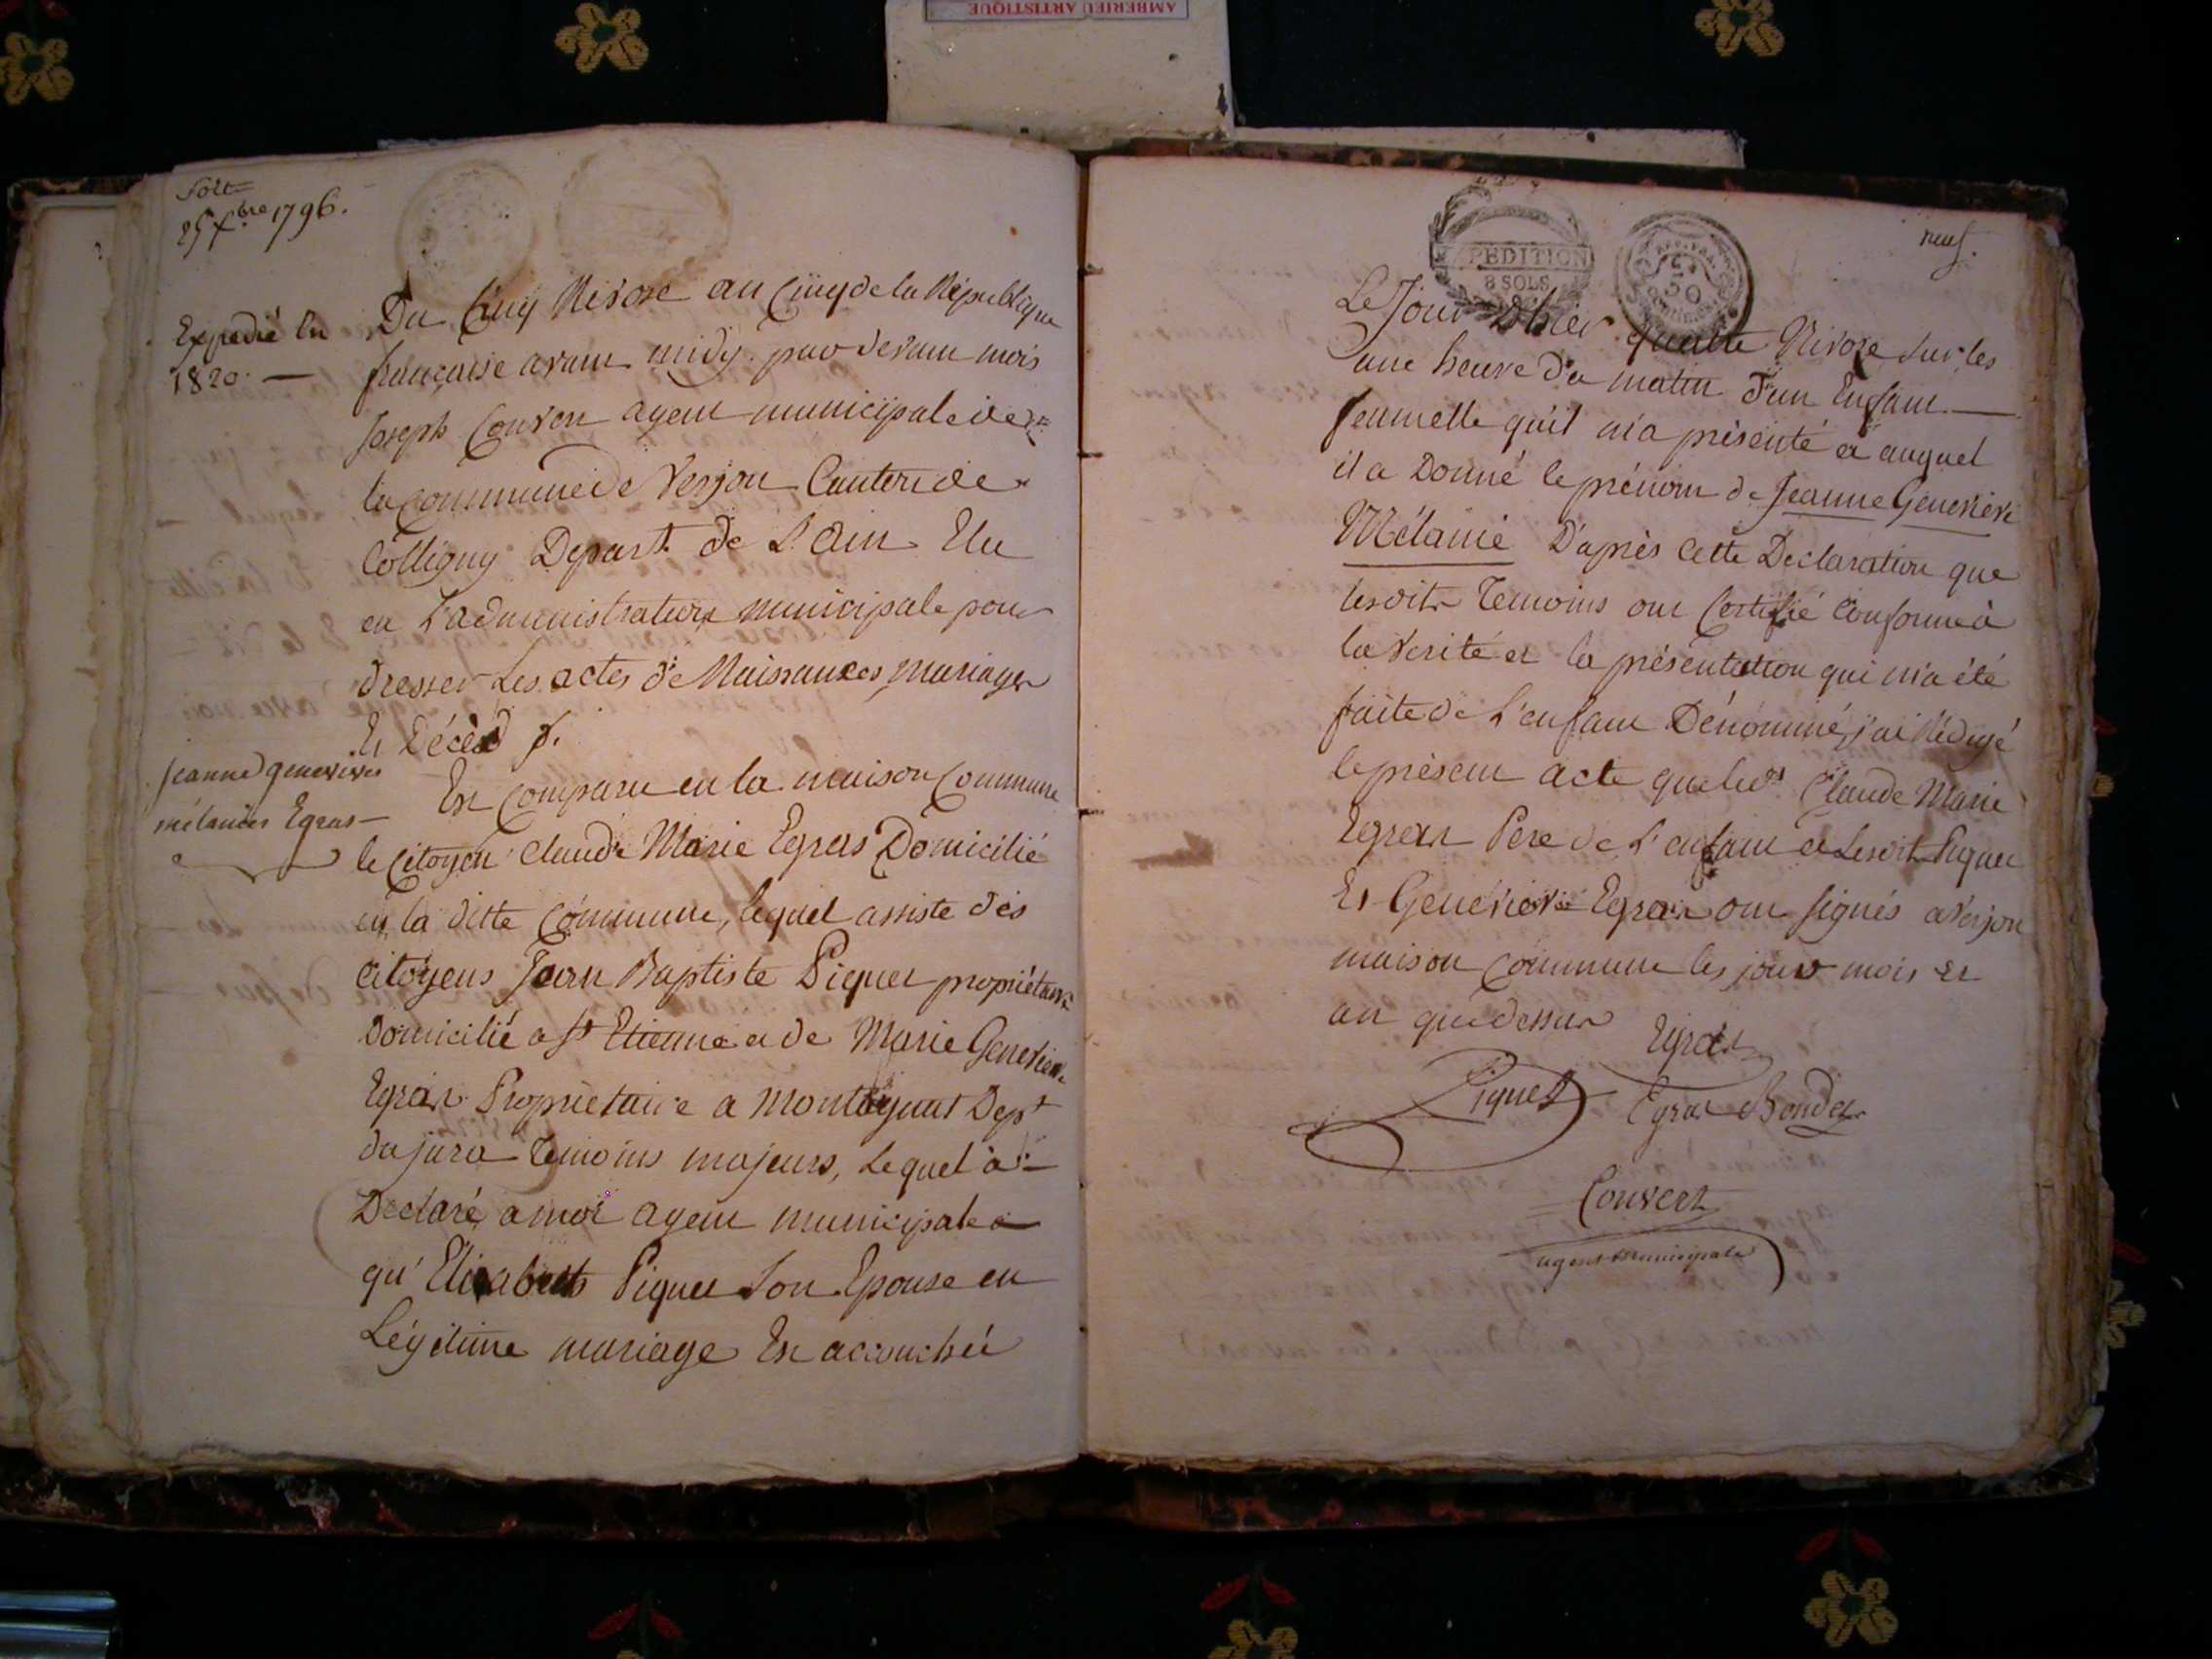 AMBERIEU ARTISTIQUE
Soit
25 Xbre 1796.
Expedié en
1820. —
Du Cinq Nivose an Cinq de la République
française avant midy. par devant mois
Joseph Convert agent municipale de
la commune de Verjon Canton de
Colligny Depart. de L'Ain Elu
en L'administration municipale pour
dresser Les actes de Naissances, mariages
Et Décèd
jeanne genevieve
mélanier Egras —
Est Comparu en la maison Commune
le Citoyen Claude Marie Egras Domicilié
en la ditte Commune, lequel assiste des
Citoyens Jean Baptiste Piquet propriétaire
Domicilié a St Etienne et de Marie Genevieve
Egras Propriétaire a Montagnat Dept
du jura temoins majeurs, Lequel a
Declaré a moi agent municipale
qu'Elisabeth Piquet Son Epouse en
Légitime mariage Est accouchée
PEDITION
8 SOLS
50
neuf.
Le Jour d'hier quatre Nivose sur les
une heure du matin d'un Enfant —
femmelle qu'il m'a présenté et auquel
il a Donné le prénom de Jeanne Genevieve
Mélanie D'après Cette Declaration que
lesdits Temoins ont Certifié Conforme à
la Verité et la présentation qui m'a été
faite de L'enfant Dénommé, j'ai Rédigé
le présent acte que led. Claude Marie
Egras Pere de L'enfant et Lesdit Piquet
Et Genevieve Egras ont signés a Verjon
maison Commune les jour mois et
an que dessus
Egras
Piquet
Egras Bondet
Convert
agent municipale